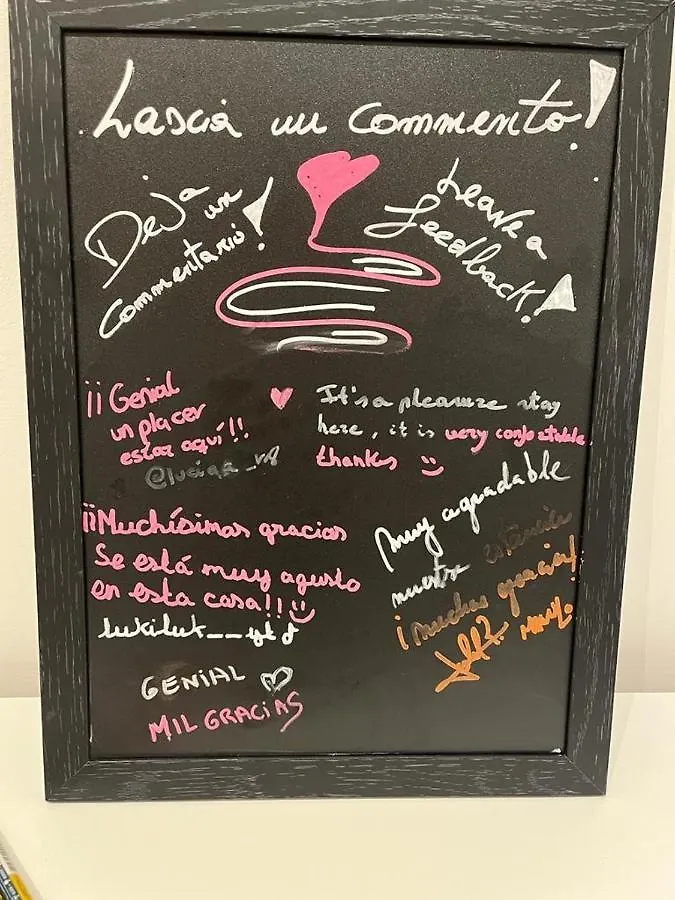 Lascia un commento!
Deja un
commentario!
Leave a
feedback!
¡¡Genial
un placer
estar aquí!!
It's a pleasure stay
here, it is very confortable,
thanks :)
¡¡Muchísimas gracias
Se está muy agusto
en esta casa!! :)
Muy agradable
nuestra estancia
¡Muchas gracias!
GENIAL ♡
MIL GRACIAS